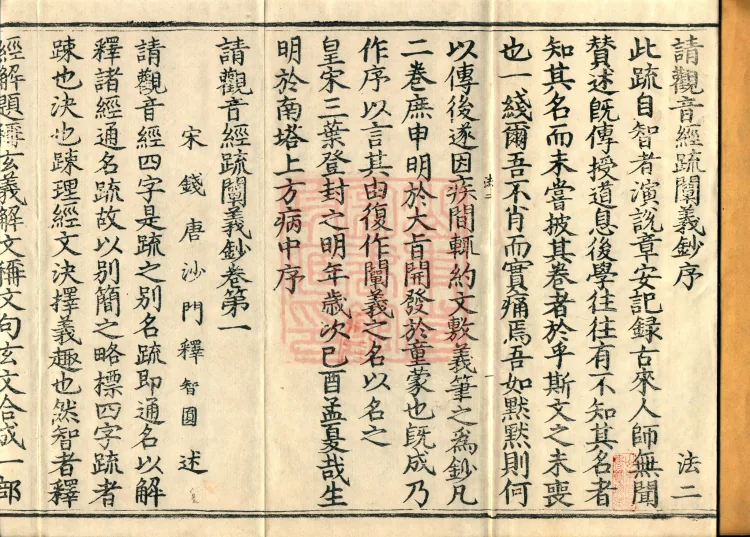 請觀音經疏闡義鈔序 法二
此疏自智者演說章安記録古來人師無聞
賛述旣傳授道息後學往往有不知其名者
知其名而未嘗披其卷者於乎斯文之未喪
也一綫爾吾不肖而實痛焉吾如默默則何
以傳後遂因疾間輒約文敷義筆之為鈔凡
法二
二卷庶申明於大旨開發於童蒙也旣成乃
作序以言其由復作闡義之名以名之
皇宋三葉登封之明年歲次己酉孟夏哉生
明於南塔上方病中序
請觀音經疏闡義鈔卷第一
宋錢唐沙門釋智圓述
請觀音經四字是疏之別名疏即通名以解
釋諸經通名疏故以別簡之略標四字疏者
踈也決也踈理經文決擇義趣也然智者釋
經解題稱玄義解文稱文句玄文合成一部